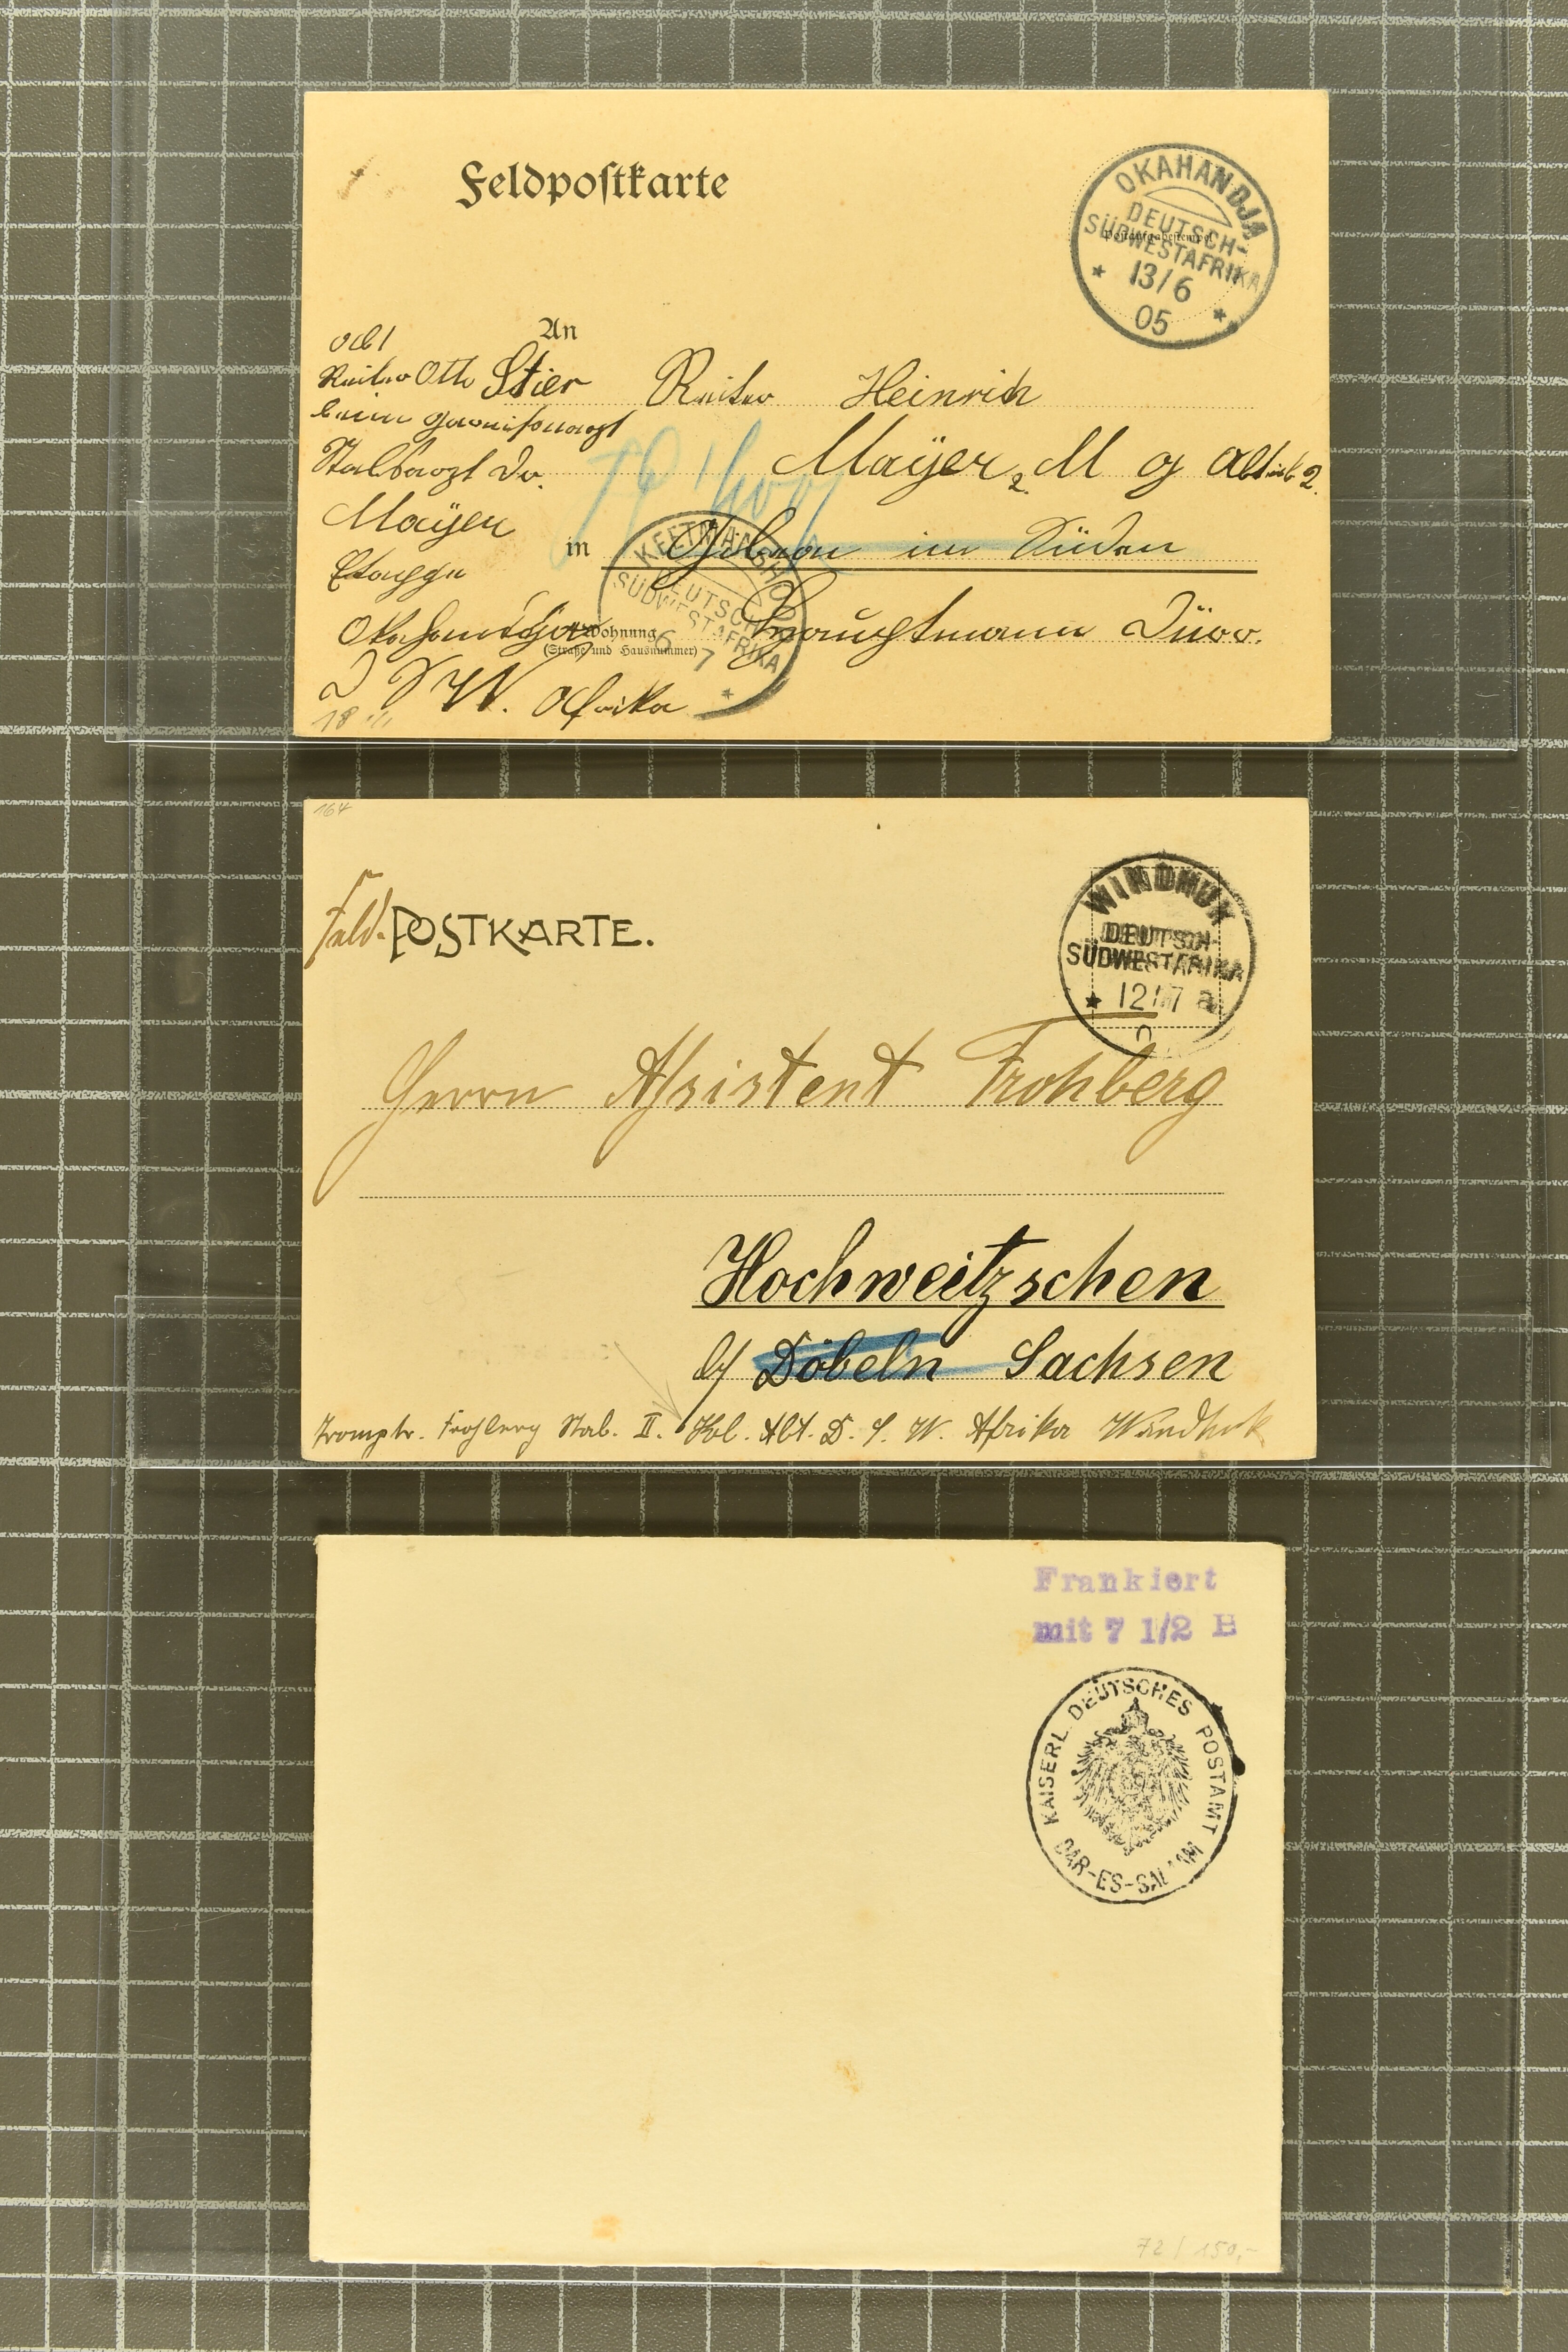 Feldpostkarte
OKAHANDJA
DEUTSCH-
SÜDWESTAFRIKA
Postaufgabestempel
13/6
05
An
Reiter Otto Stier
Reiter Heinrich
beim
Stabsarzt Dr.
Mayer 2. M
Mayer
in Gibeon im Süden
KEETMANSHOOP
DEUTSCH-
SÜDWESTAFRIKA
6 7
Etappe
Okahandja
Wohnung
(Straße und Hausnummer)
Hauptmann Dürr.
D S W. Afrika
18
164
Feld-POSTKARTE.
WINDHUK
DEUTSCH-
SÜDWESTAFRIKA
12/7 a
Herrn Assistent Frohberg
Hochweitzschen
b/ Döbeln Sachsen
Tromptr. Frohberg Stab. II. Kol. Abt. D. S. W. Afrika Windhuk
Frankiert
mit 7 1/2 H
KAISERL. DEUTSCHES POSTAMT
DAR-ES-SALAAM
72 / 150,-